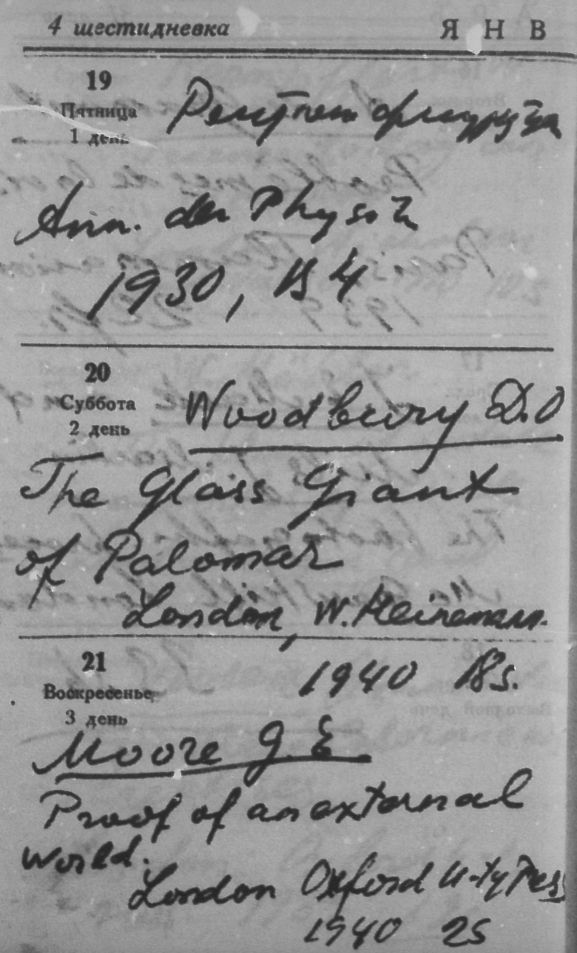 4 шестидневка ЯНВ
19
Пятница
1 день
Ann. der Physik
1930, B 4
20
Суббота
2 день
Woodbury D.O
The Glass Giant
of Palomar
London, W. Heinemann.
21
Воскресенье
3 день
1940 18s.
Moore G. E
Proof of an external
World.
London Oxford U-ty Press
1940 2s